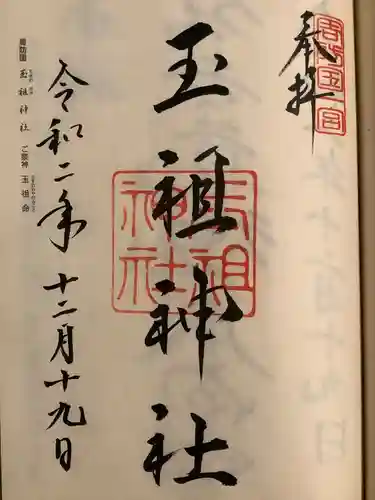 奉拝
周防国一宮
玉祖神社
玉祖神社
令和二年 十二月十九日
周防国 玉祖神社 ご祭神 玉祖命